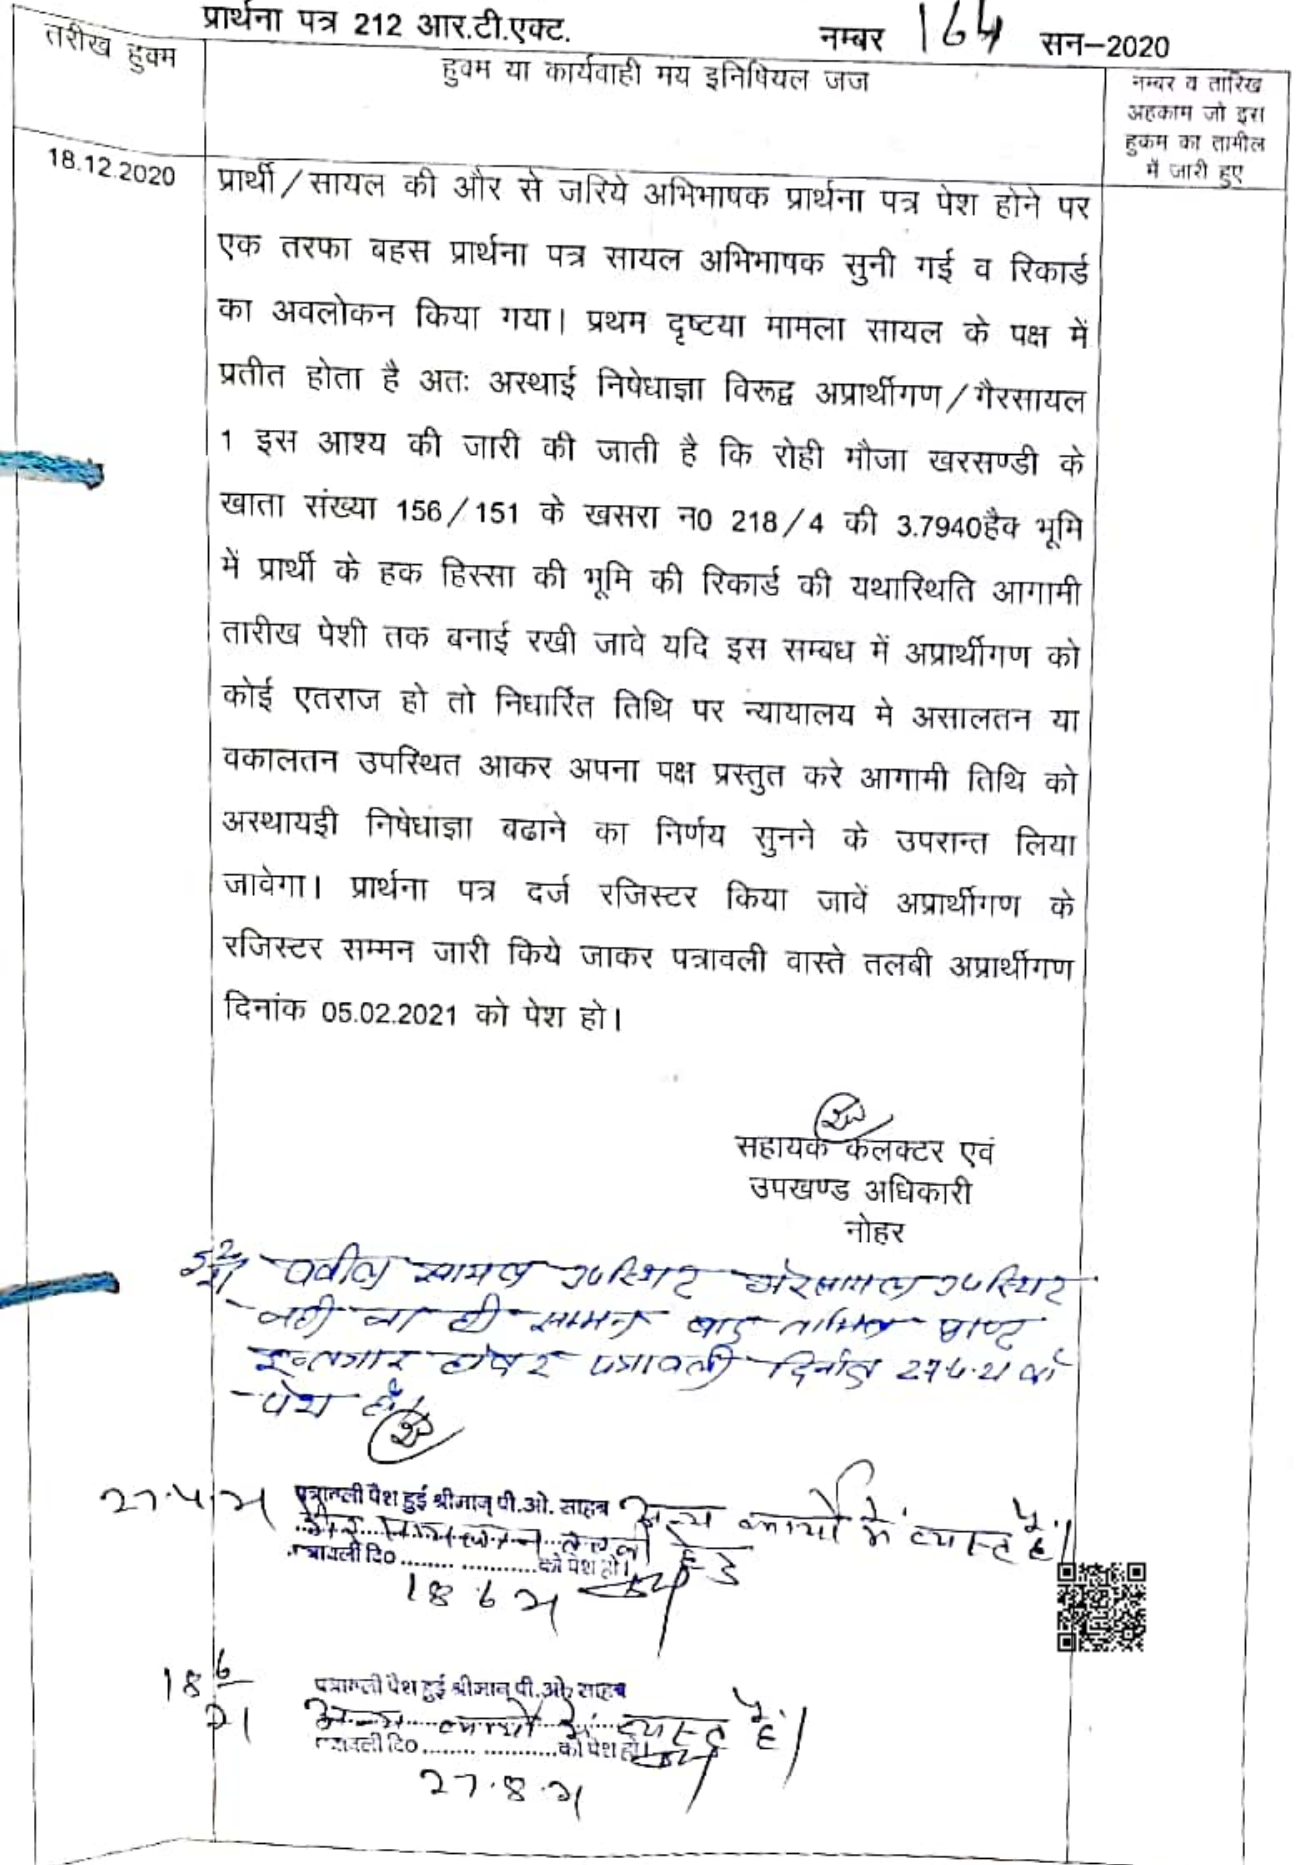 प्रार्थना पत्र 212 आर.टी.एक्ट. नम्बर 164 सन–2020
तरीख हुक्म
हुक्म या कार्यवाही मय इनिषियल जज
नम्बर व तारिख
अहकाम जो इस
हुकम का तामील
में जारी हुए
18.12.2020
प्रार्थी/सायल की और से जरिये अभिभाषक प्रार्थना पत्र पेश होने पर
एक तरफा बहस प्रार्थना पत्र सायल अभिभाषक सुनी गई व रिकार्ड
का अवलोकन किया गया। प्रथम दृष्टया मामला सायल के पक्ष में
प्रतीत होता है अतः अस्थाई निषेधाज्ञा विरूद्व अप्रार्थीगण/गैरसायल
1 इस आश्य की जारी की जाती है कि रोही मौजा खरसण्डी के
खाता संख्या 156/151 के खसरा न0 218/4 की 3.7940हैक भूमि
में प्रार्थी के हक हिस्सा की भूमि की रिकार्ड की यथास्थिति आगामी
तारीख पेशी तक बनाई रखी जावे यदि इस सम्बध में अप्रार्थीगण को
कोई एतराज हो तो निधार्रित तिथि पर न्यायालय मे असालतन या
वकालतन उपस्थित आकर अपना पक्ष प्रस्तुत करे आगामी तिथि को
अस्थायडी निषेधाज्ञा बढाने का निर्णय सुनने के उपरान्त लिया
जावेगा। प्रार्थना पत्र दर्ज रजिस्टर किया जावें अप्रार्थीगण के
रजिस्टर सम्मन जारी किये जाकर पत्रावली वास्ते तलबी अप्रार्थीगण
दिनांक 05.02.2021 को पेश हो।
सहायक कलक्टर एवं
उपखण्ड अधिकारी
नोहर
वकील सायल उपस्थित गैरसायल उपस्थित
नही सम्मन बाद तामिल
इन्तजार होकर पत्रावली दिनांक 27.4.21 को
पेश हो।
27.4.21 पत्रावली पेश हुई श्रीमान् पी.ओ. साहब अन्य कार्यो में व्यस्त है।
पत्रावली दि० .................... को पेश हो।
18.6.21
18 6/21 पत्रावली पेश हुई श्रीमान् पी.ओ. साहब
अन्य कार्यो में व्यस्त है।
पत्रावली दि० .................... को पेश हो।
27.8.21